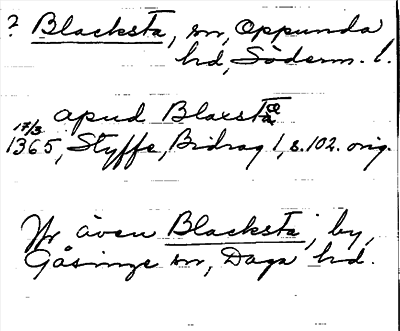 ? Blacksta, sn, Oppunda
hd, Söderm. l.
apud Blacsta
17/3
1365, Styffe, Bidrag 1, s. 102. orig.
Jfr även Blacksta, by,
Gåsinge sn, Daga hd.